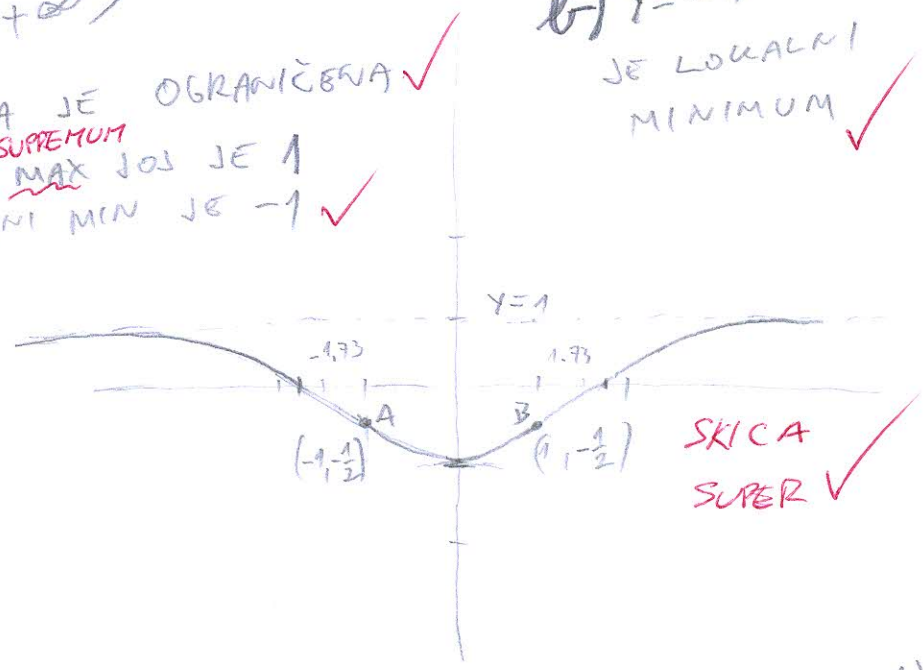 +∞)
b) Y=
A JE OGRANIČENA
SUPREMUM
MAX JOJ JE 1
NI MIN JE -1
JE LOKALNI
MINIMUM
Y=1
-1,73
1.73
A
B
(-1,-1/2)
(1,-1/2)
SKICA
SUPER